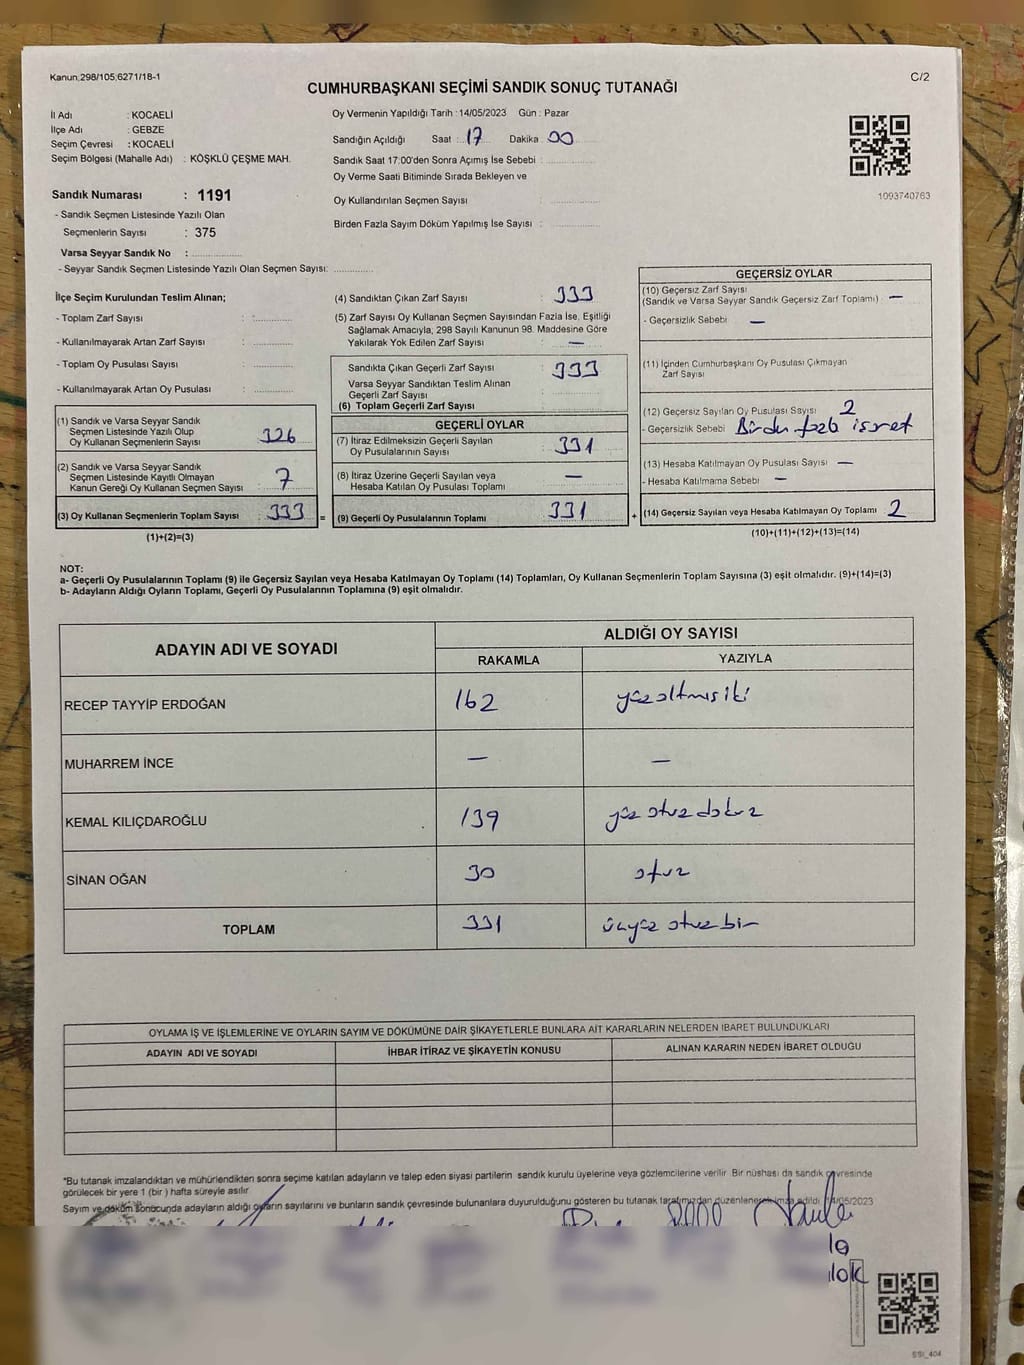 Kanun:298/105;6271/18-1
C/2
CUMHURBAŞKANI SEÇİMİ SANDIK SONUÇ TUTANAĞI
İl Adı : KOCAELİ
İlçe Adı : GEBZE
Seçim Çevresi : KOCAELİ
Seçim Bölgesi (Mahalle Adı) : KÖŞKLÜ ÇEŞME MAH.
Oy Vermenin Yapıldığı Tarih : 14/05/2023 Gün : Pazar
Sandığın Açıldığı Saat : 17 Dakika 00
Sandık Saat 17:00'den Sonra Açımış İse Sebebi :
Oy Verme Saati Bitiminde Sırada Bekleyen ve
Oy Kullandırılan Seçmen Sayısı :
Birden Fazla Sayım Döküm Yapılmış İse Sayısı :
1093740763
Sandık Numarası : 1191
- Sandık Seçmen Listesinde Yazılı Olan
Seçmenlerin Sayısı : 375
Varsa Seyyar Sandık No :
- Seyyar Sandık Seçmen Listesinde Yazılı Olan Seçmen Sayısı:
İlçe Seçim Kurulundan Teslim Alınan;
- Toplam Zarf Sayısı :
- Kullanılmayarak Artan Zarf Sayısı :
- Toplam Oy Pusulası Sayısı :
- Kullanılmayarak Artan Oy Pusulası :
(1) Sandık ve Varsa Seyyar Sandık
Seçmen Listesinde Yazılı Olup
Oy Kullanan Seçmenlerin Sayısı : 326
(2) Sandık ve Varsa Seyyar Sandık
Seçmen Listesinde Kayıtlı Olmayan
Kanun Gereği Oy Kullanan Seçmen Sayısı : 7
(3) Oy Kullanan Seçmenlerin Toplam Sayısı : 333 =
(1)+(2)=(3)
(4) Sandıktan Çıkan Zarf Sayısı : 333
(5) Zarf Sayısı Oy Kullanan Seçmen Sayısından Fazla İse, Eşitliği
Sağlamak Amacıyla, 298 Sayılı Kanunun 98. Maddesine Göre
Yakılarak Yok Edilen Zarf Sayısı : —
Sandıkta Çıkan Geçerli Zarf Sayısı : 333
Varsa Seyyar Sandıktan Teslim Alınan
Geçerli Zarf Sayısı :
(6) Toplam Geçerli Zarf Sayısı :
GEÇERLİ OYLAR
(7) İtiraz Edilmeksizin Geçerli Sayılan
Oy Pusulalarının Sayısı : 331
(8) İtiraz Üzerine Geçerli Sayılan veya
Hesaba Katılan Oy Pusulası Toplamı : —
(9) Geçerli Oy Pusulalarının Toplamı : 331 +
GEÇERSİZ OYLAR
(10) Geçersiz Zarf Sayısı
(Sandık ve Varsa Seyyar Sandık Geçersiz Zarf Toplamı) : —
- Geçersizlik Sebebi : —
(11) İçinden Cumhurbaşkanı Oy Pusulası Çıkmayan
Zarf Sayısı :
(12) Geçersiz Sayılan Oy Pusulası Sayısı : 2
- Geçersizlik Sebebi : Birden fazla işaret
(13) Hesaba Katılmayan Oy Pusulası Sayısı : —
- Hesaba Katılmama Sebebi : —
(14) Geçersiz Sayılan veya Hesaba Katılmayan Oy Toplamı : 2
(10)+(11)+(12)+(13)=(14)
NOT:
a- Geçerli Oy Pusulalarının Toplamı (9) ile Geçersiz Sayılan veya Hesaba Katılmayan Oy Toplamı (14) Toplamları, Oy Kullanan Seçmenlerin Toplam Sayısına (3) eşit olmalıdır. (9)+(14)=(3)
b- Adayların Aldığı Oyların Toplamı, Geçerli Oy Pusulalarının Toplamına (9) eşit olmalıdır.
ADAYIN ADI VE SOYADI
ALDIĞI OY SAYISI
RAKAMLA YAZIYLA
RECEP TAYYİP ERDOĞAN 162 yüzaltmışiki
MUHARREM İNCE — —
KEMAL KILIÇDAROĞLU 139 yüz otuz dokuz
SİNAN OĞAN 30 otuz
TOPLAM 331 üçyüz otuz bir
OYLAMA İŞ VE İŞLEMLERİNE VE OYLARIN SAYIM VE DÖKÜMÜNE DAİR ŞİKAYETLERLE BUNLARA AİT KARARLARIN NELERDEN İBARET BULUNDUKLARI
ADAYIN ADI VE SOYADI İHBAR İTİRAZ VE ŞİKAYETİN KONUSU ALINAN KARARIN NEDEN İBARET OLDUĞU
*Bu tutanak imzalandıktan ve mühürlendikten sonra seçime katılan adayların ve talep eden siyasi partilerin sandık kurulu üyelerine veya gözlemcilerine verilir. Bir nüshası da sandık çevresinde
görülecek bir yere 1 (bir) hafta süreyle asılır.
Sayım ve döküm sonucunda adayların aldığı oyların sayılarını ve bunların sandık çevresinde bulunanlara duyurulduğunu gösteren bu tutanak tarafımızdan düzenlenerek imza edildi. 14/05/2023
SSI_404